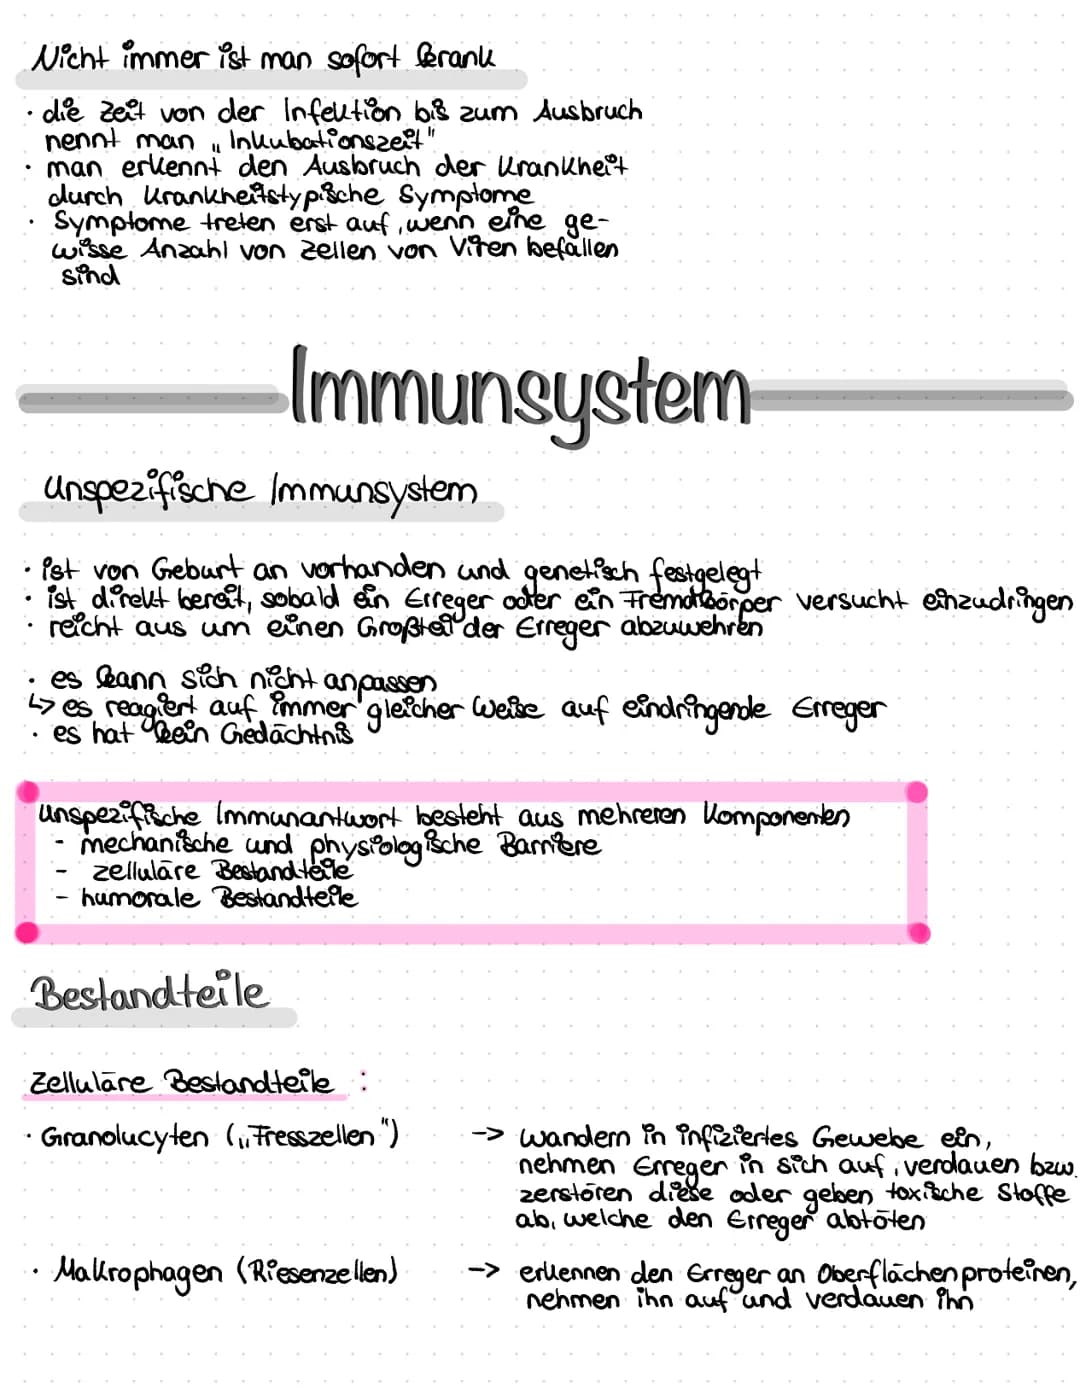 Nicht immer ist man sofort krank
· die Zeit von der Infektion bis zum Ausbruch
nennt man „Inkubationszeit"
· man erkennt den Ausbruch der Krankheit
durch Krankheitstypische Symptome
· Symptome treten erst auf, wenn eine ge-
wisse Anzahl von Zellen von Viren befallen
sind
Immunsystem
Unspezifische Immunsystem
· ist von Geburt an vorhanden und genetisch festgelegt
· ist direkt bereit, sobald ein Erreger oder ein Fremdkörper versucht einzudringen
· reicht aus um einen Großteil der Erreger abzuwehren
· es kann sich nicht anpassen
↳ es reagiert auf immer gleicher Weise auf eindringende Erreger
· es hat kein Gedächtnis
Unspezifische Immunantwort besteht aus mehreren Komponenten
- mechanische und physiologische Barriere
- zelluläre Bestandteile
- humorale Bestandteile
Bestandteile
Zelluläre Bestandteile :
· Granolucyten („Fresszellen") -> wandern in infiziertes Gewebe ein,
nehmen Erreger in sich auf, verdauen bzw.
zerstören diese oder geben toxische Stoffe
ab, welche den Erreger abtöten
· Makrophagen (Riesenzellen) -> erkennen den Erreger an Oberflächenproteinen,
nehmen ihn auf und verdauen ihn